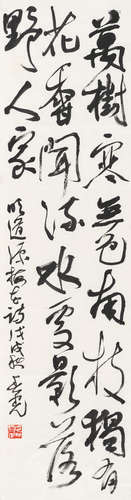 萬樹寒無色南枝獨有
花香聞流水處影落
野人家
明道源梅花詩戊戌秋